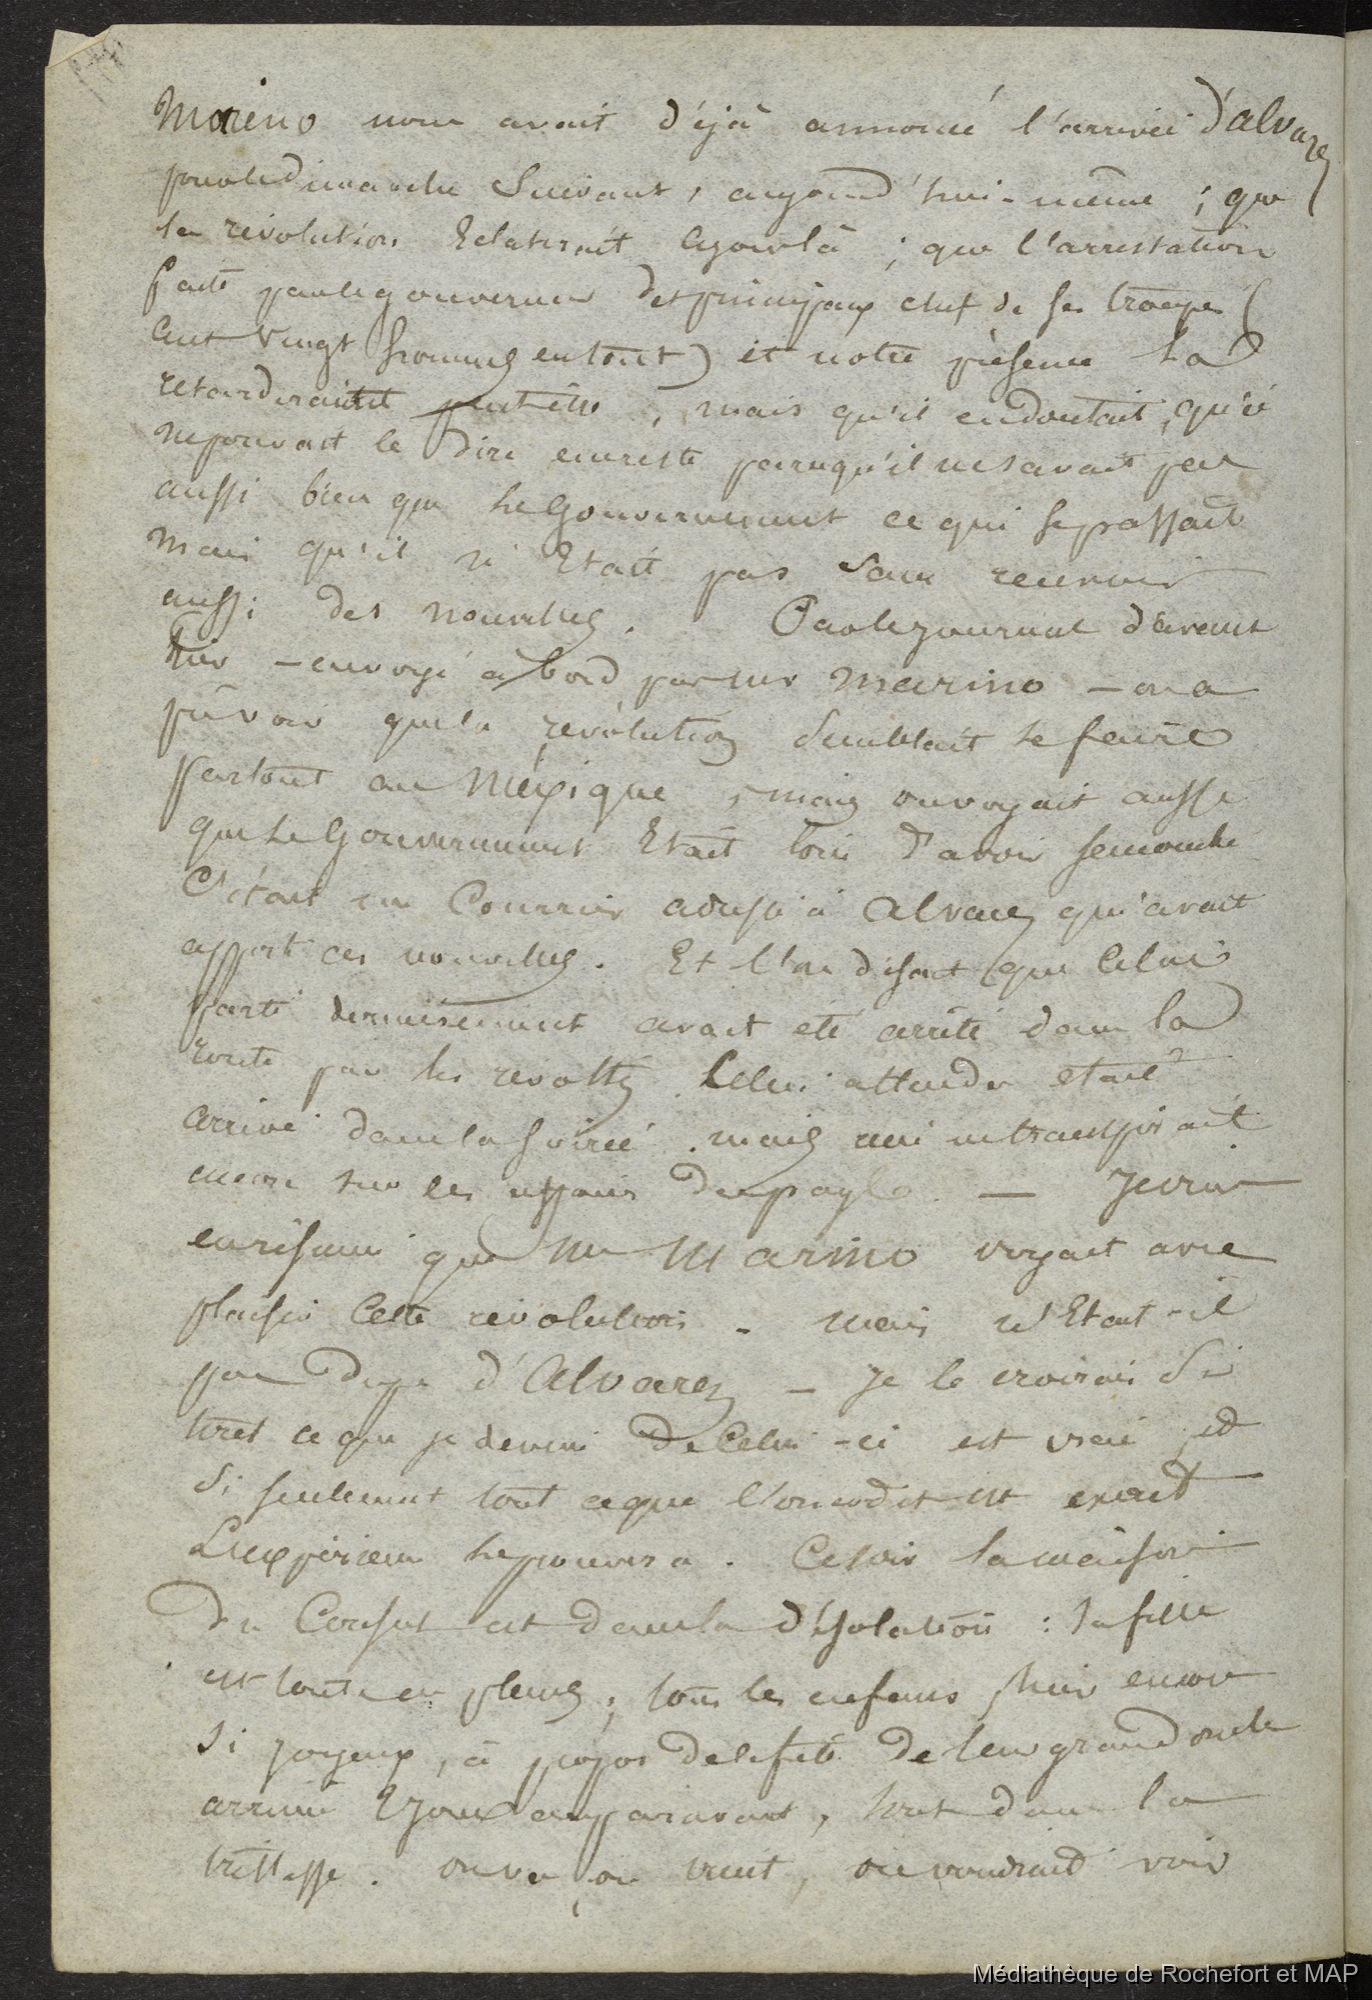 Moreno nous avait déjà annoncé l'arrivée d'Alvarez
pour le dimanche suivant, aujourd'hui-même ; que
la révolution Eclaterait ce jour là ; que l'arrestation
faite par le gouverneur des principaux chef de ses troupes (
cent vingt hommes en tout) et notre présence la
retarderaient peut-être, mais qu'il en doutait, qu'il
ne pouvait le dire en reste parcequ'il ne savait pas
aussi bien que le Gouvernement ce qui se passait
mais qu'il n'Etait pas sans recevoir
aussi des nouvelles. Par le journal d'avant
hier – envoyé à bord par mr Marino – on a
pu voir que la révolution semblait se faire
partout au Méxique, mais on voyait aussi
que le Gouvernement Etait loin d'avoir
C'était un Courrier adressé à Alvarez qui avait
apporté ces nouvelles. Et l'on disait que celui
parti dernièrement avait été arrêté dans la
route par les révoltés. Celui attendu était
arrivé dans la soirée. mais rien ne transpirait
encore sur les affaires du pays. — Je vis
en résumé que Mr Marino voyait avec
plaisir cette révolution. mais n'Etait-il
pas dupe d'Alvarez – Je le croirais si
tout ce que je devine de Celui-ci est vrai et
si seulement tout ce que l'on en dit est exact
L'expérience le prouvera. Ce soir la maison
du Consul est dans la désolation : sa fille
est toute en pleurs ; tous les enfans, hier encore
si joyeux, à propos de la fête de leur grand oncle
arrivé 2 jours auparavant, sont dans la
tristesse. on va, on vient, on voudrait voir
Médiathèque de Rochefort et MAP